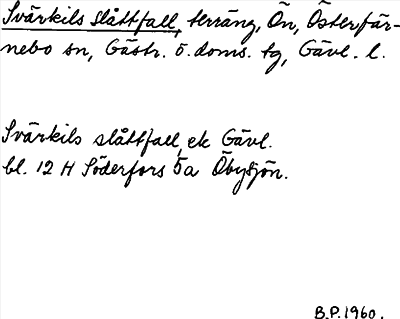 Svärkils slåttfall, terräng, Ön, Österfär-
nebo sn, Gästr. ö. doms. tg, Gävl. l.
Svärkils slåttfall, ek Gävl.
bl. 12 H Söderfors 5a Öbysjön.
B.P. 1960.